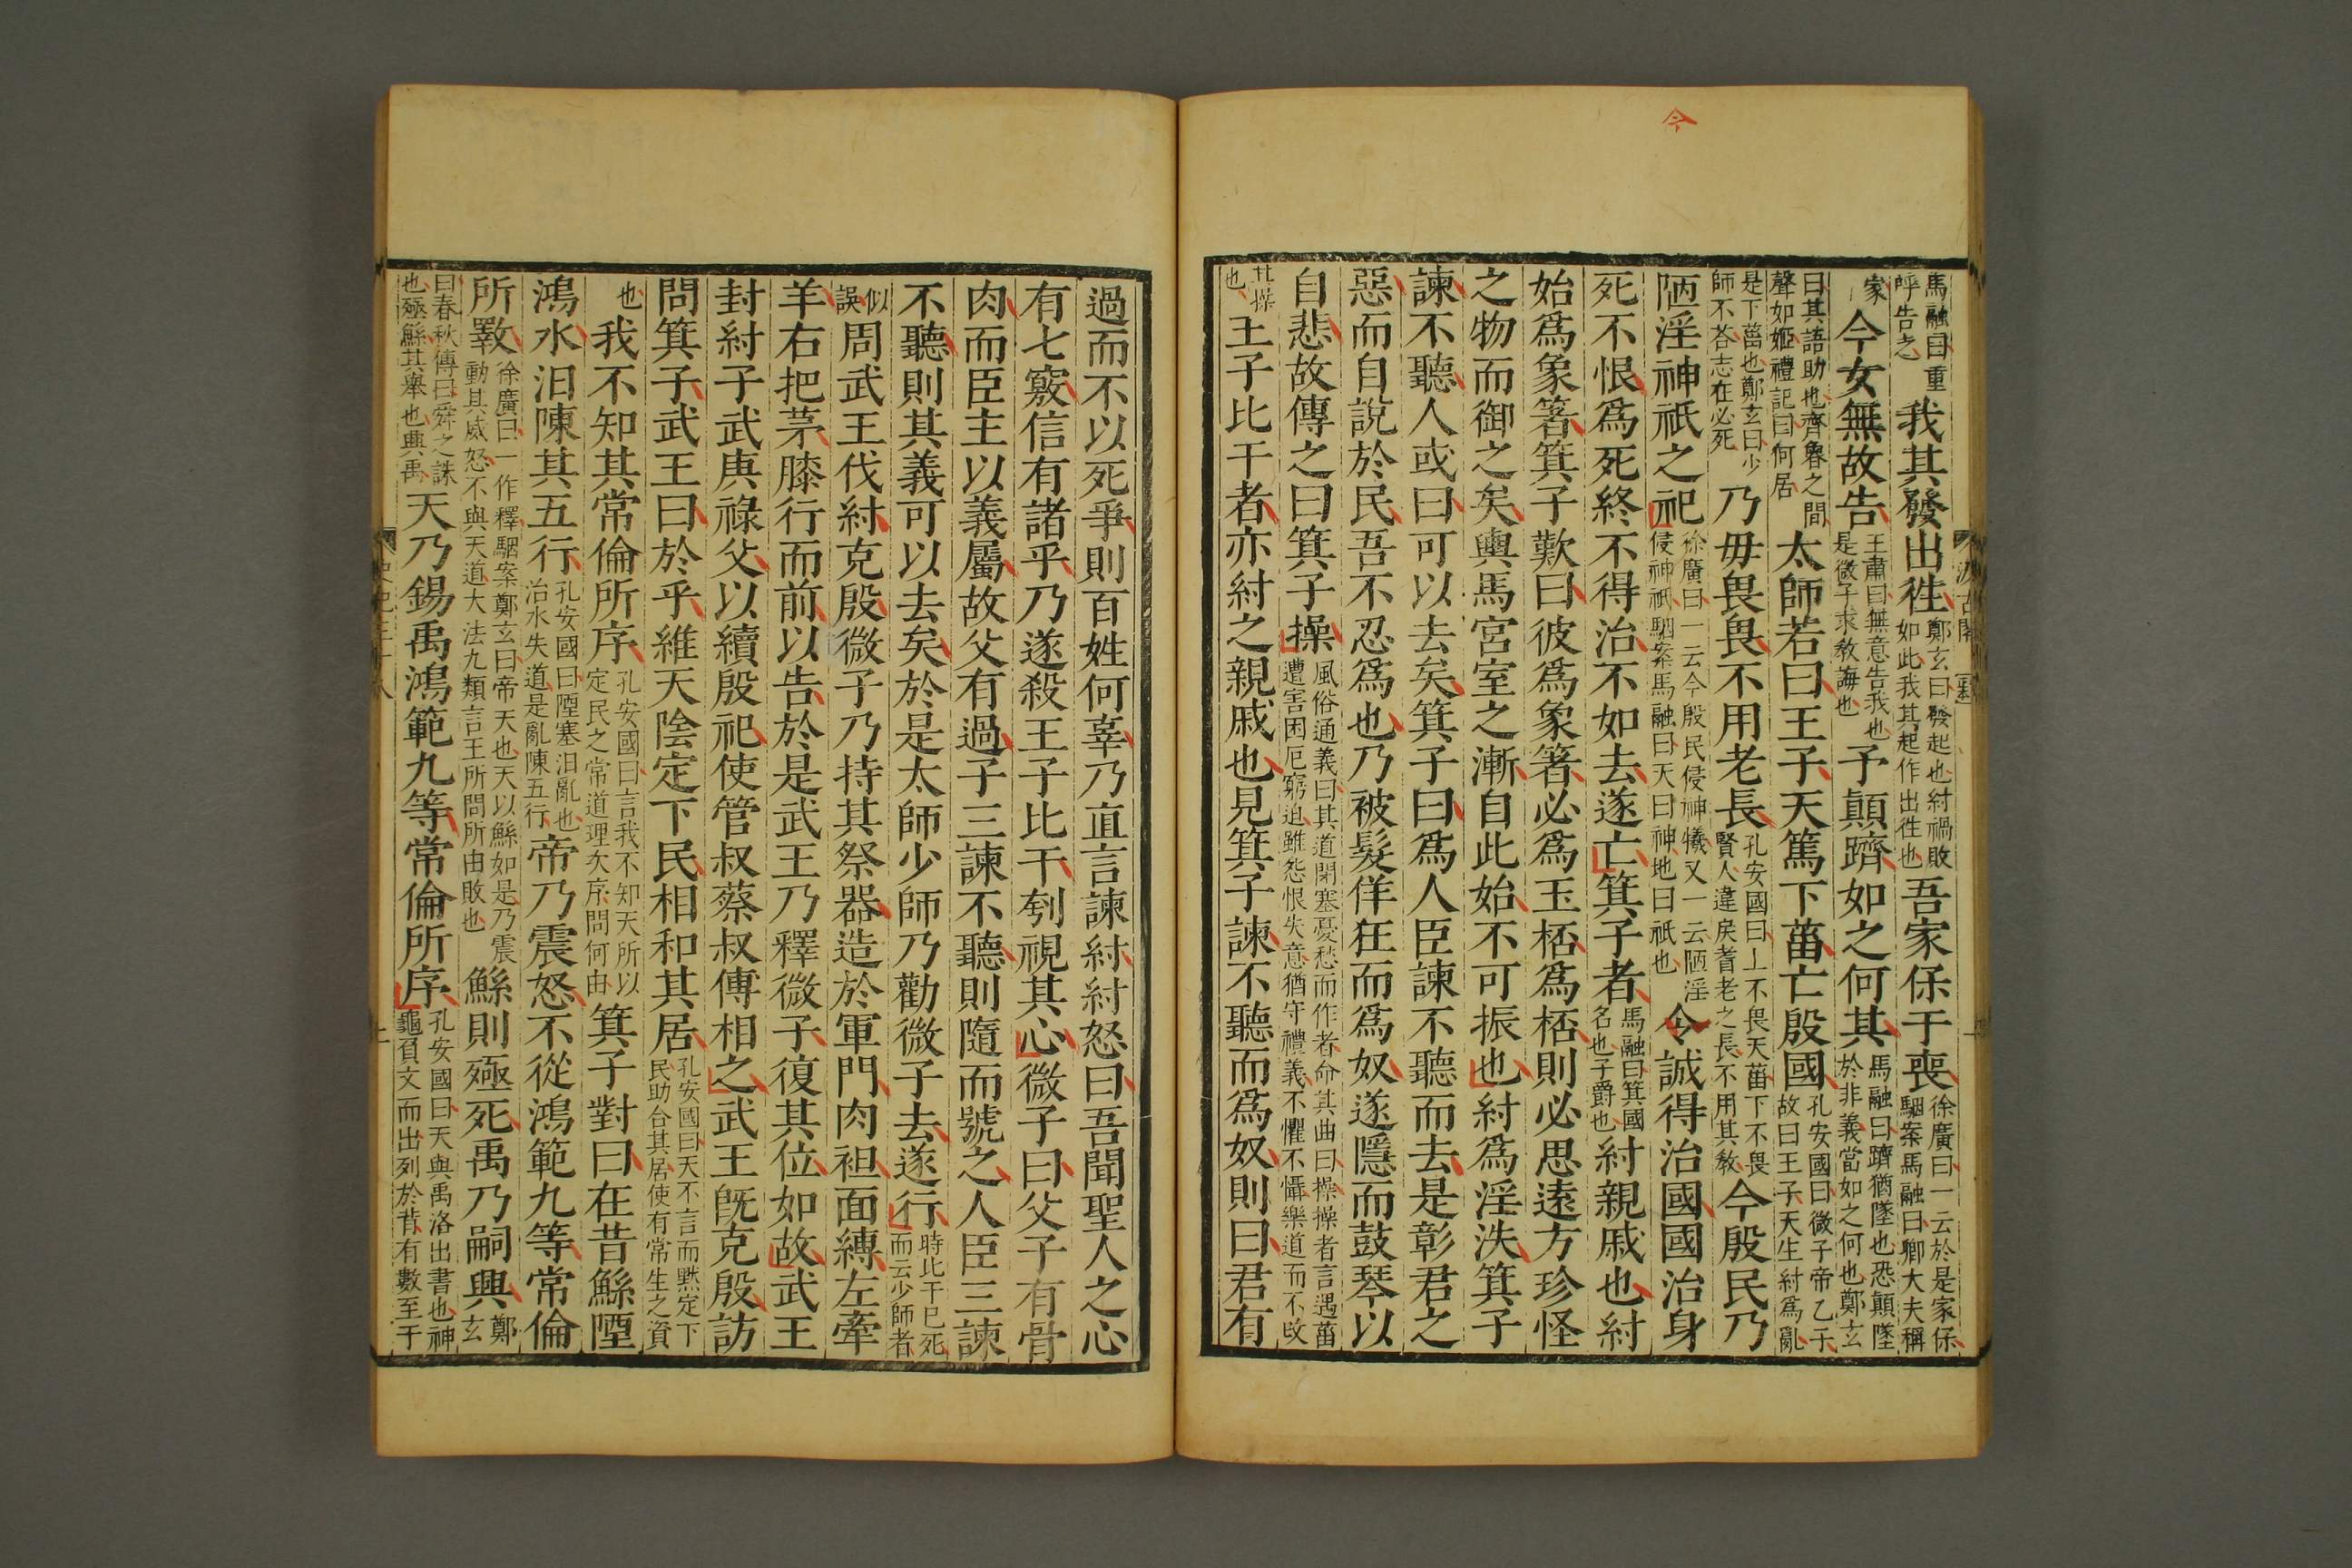 今
馬融曰重呼告之我其發出徃鄭玄曰發起也紂禍敗如此我其起作出徃也吾家保于喪徐廣曰一云於是家保駰案馬融曰卿大夫稱
家今女無故告王肅曰無意告我也是微子求教誨也予顛躋如之何其馬融曰躋猶墜也恐顛墜於非義當如之何也鄭玄
曰其語助也齊魯之間聲如姬禮記曰何居太師若曰王子天篤下菑亡殷國孔安國曰微子帝乙子故曰王子天生紂爲亂
是下菑也鄭玄曰少師不荅志在必死乃毋畏畏不用老長孔安國曰上不畏天菑下不畏賢人違戾耆老之長不用其教今殷民乃
陋淫神祇之祀徐廣曰一云今殷民侵神犧又一云陋淫侵神祇駰案馬融曰天曰神地曰祇也今誠得治國國治身
死不恨爲死終不得治不如去遂亡箕子者馬融曰箕國名也子爵也紂親戚也紂
始爲象箸箕子歎曰彼爲象箸必爲玉桮爲桮則必思遠方珍怪
之物而御之矣輿馬宮室之漸自此始不可振也紂爲淫泆箕子
諫不聽人或曰可以去矣箕子曰爲人臣諫不聽而去是彰君之
惡而自說於民吾不忍爲也乃被髮佯狂而爲奴遂隱而鼓琴以
自悲故傳之曰箕子操風俗通義曰其道閉塞憂愁而作者命其曲曰操操者言遇菑遭害困厄窮迫雖怨恨失意猶守禮義不懼不懾樂道而不改
其操也王子比干者亦紂之親戚也見箕子諫不聽而爲奴則曰君有
汲古閣
過而不以死爭則百姓何辜乃直言諫紂紂怒曰吾聞聖人之心
有七竅信有諸乎乃遂殺王子比干刳視其心微子曰父子有骨
肉而臣主以義屬故父有過子三諫不聽則隨而號之人臣三諫
不聽則其義可以去矣於是太師少師乃勸微子去遂行時比干已死而云少師者
似誤周武王伐紂克殷微子乃持其祭器造於軍門肉袒面縛左牽
羊右把茅膝行而前以告於是武王乃釋微子復其位如故武王
封紂子武庚祿父以續殷祀使管叔蔡叔傅相之武王旣克殷訪
問箕子武王曰於乎維天陰定下民相和其居孔安國曰天不言而黙定下民助合其居使有常生之資
也我不知其常倫所序孔安國曰言我不知天所以定民之常道理次序問何由箕子對曰在昔鯀陻
鴻水汩陳其五行孔安國曰陻塞汩亂也治水失道是亂陳五行帝乃震怒不從鴻範九等常倫
所斁徐廣曰一作釋駰案鄭玄曰帝天也天以鯀如是乃震動其威怒不與天道大法九類言王所問所由敗也鯀則殛死禹乃嗣興鄭玄
曰春秋傳曰舜之誅也殛鯀其舉也興禹天乃錫禹鴻範九等常倫所序孔安國曰天與禹洛出書也神龜負文而出列於背有數至于
史記三十八